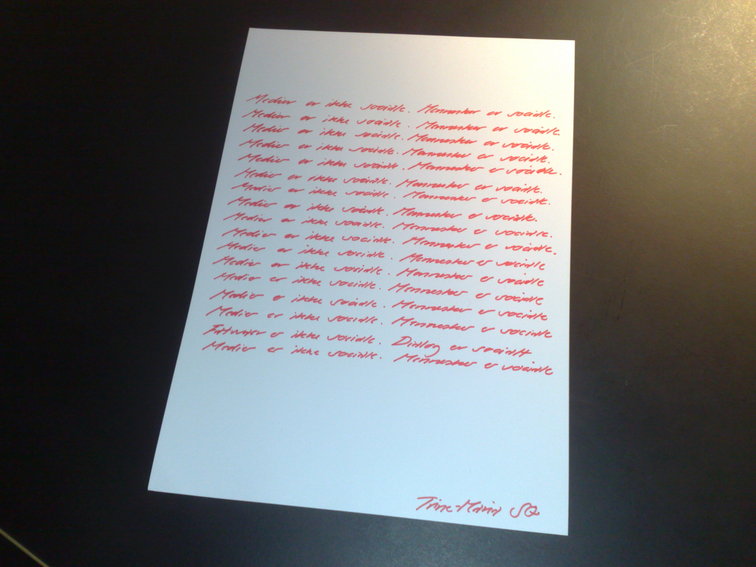 Medier er ikke sociale. Mennesker er sociale.
Medier er ikke sociale. Mennesker er sociale.
Medier er ikke sociale. Mennesker er sociale.
Medier er ikke sociale. Mennesker er sociale.
Medier er ikke sociale. Mennesker er sociale.
Medier er ikke sociale. Mennesker er sociale.
Medier er ikke sociale. Mennesker er sociale.
Medier er ikke sociale. Mennesker er sociale.
Medier er ikke sociale. Mennesker er sociale.
Medier er ikke sociale. Mennesker er sociale.
Medier er ikke sociale. Mennesker er sociale
Medier er ikke sociale. Mennesker er sociale
Medier er ikke sociale. Mennesker er sociale
Medier er ikke sociale. Mennesker er sociale
Medier er ikke sociale. Mennesker er sociale
er ikke sociale. Dialog er socialt
Medier er ikke sociale. Mennesker er sociale
Trine-Maria SQ